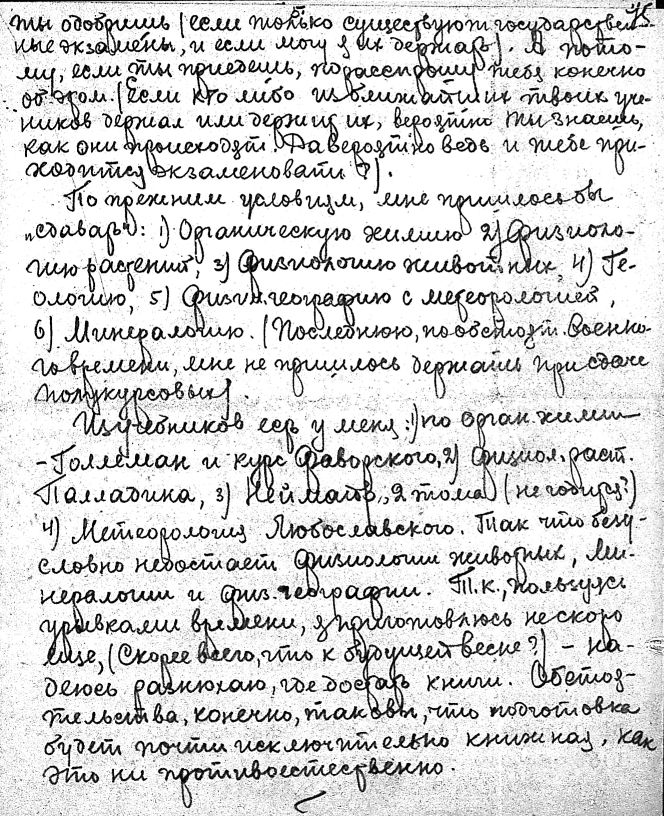 ты одобришь (если только существуют государствен- 75
ные экзамены, и если могу я их держать). А пото-
му, если ты приедешь, порасспрошу тебя конечно
об этом. (Если кто либо из ближайших твоих уче-
ников держал или держит их, вероятно ты знаешь,
как они происходят. Да вероятно ведь и тебе при-
ходится экзаменовать?).
По прежним условиям, мне пришлось бы
"сдавать": 1) Органическую химию 2) Физиоло-
гию растений, 3) Физиологию животных, 4) Ге-
ологию, 5) Физич. географию с метеорологией,
6) Минералогию. (Последнюю, по обстоят. военно-
го времени, мне не пришлось держать при сдаче
полукурсовых).
Из учебников есть у меня: 1) по орган. химии
- Голлеман и курс Фаворского, 2) Физиол. раст.
Палладина, 3) Неймайр, 2 тома (не годится?)
4) Метеорология Любославского. Так что безу-
словно недостает физиологии животных, ми-
нералогии и физ. географии. Т.к., пользуясь
урывками времени, я приготовлюсь не скоро
еще, (Скорее всего, что к будущей весне?) - на-
деюсь разнюхаю, где достать книги. Обстоя-
тельства, конечно, таковы, что подготовка
будет почти исключительно книжная, как
это ни противоестественно.